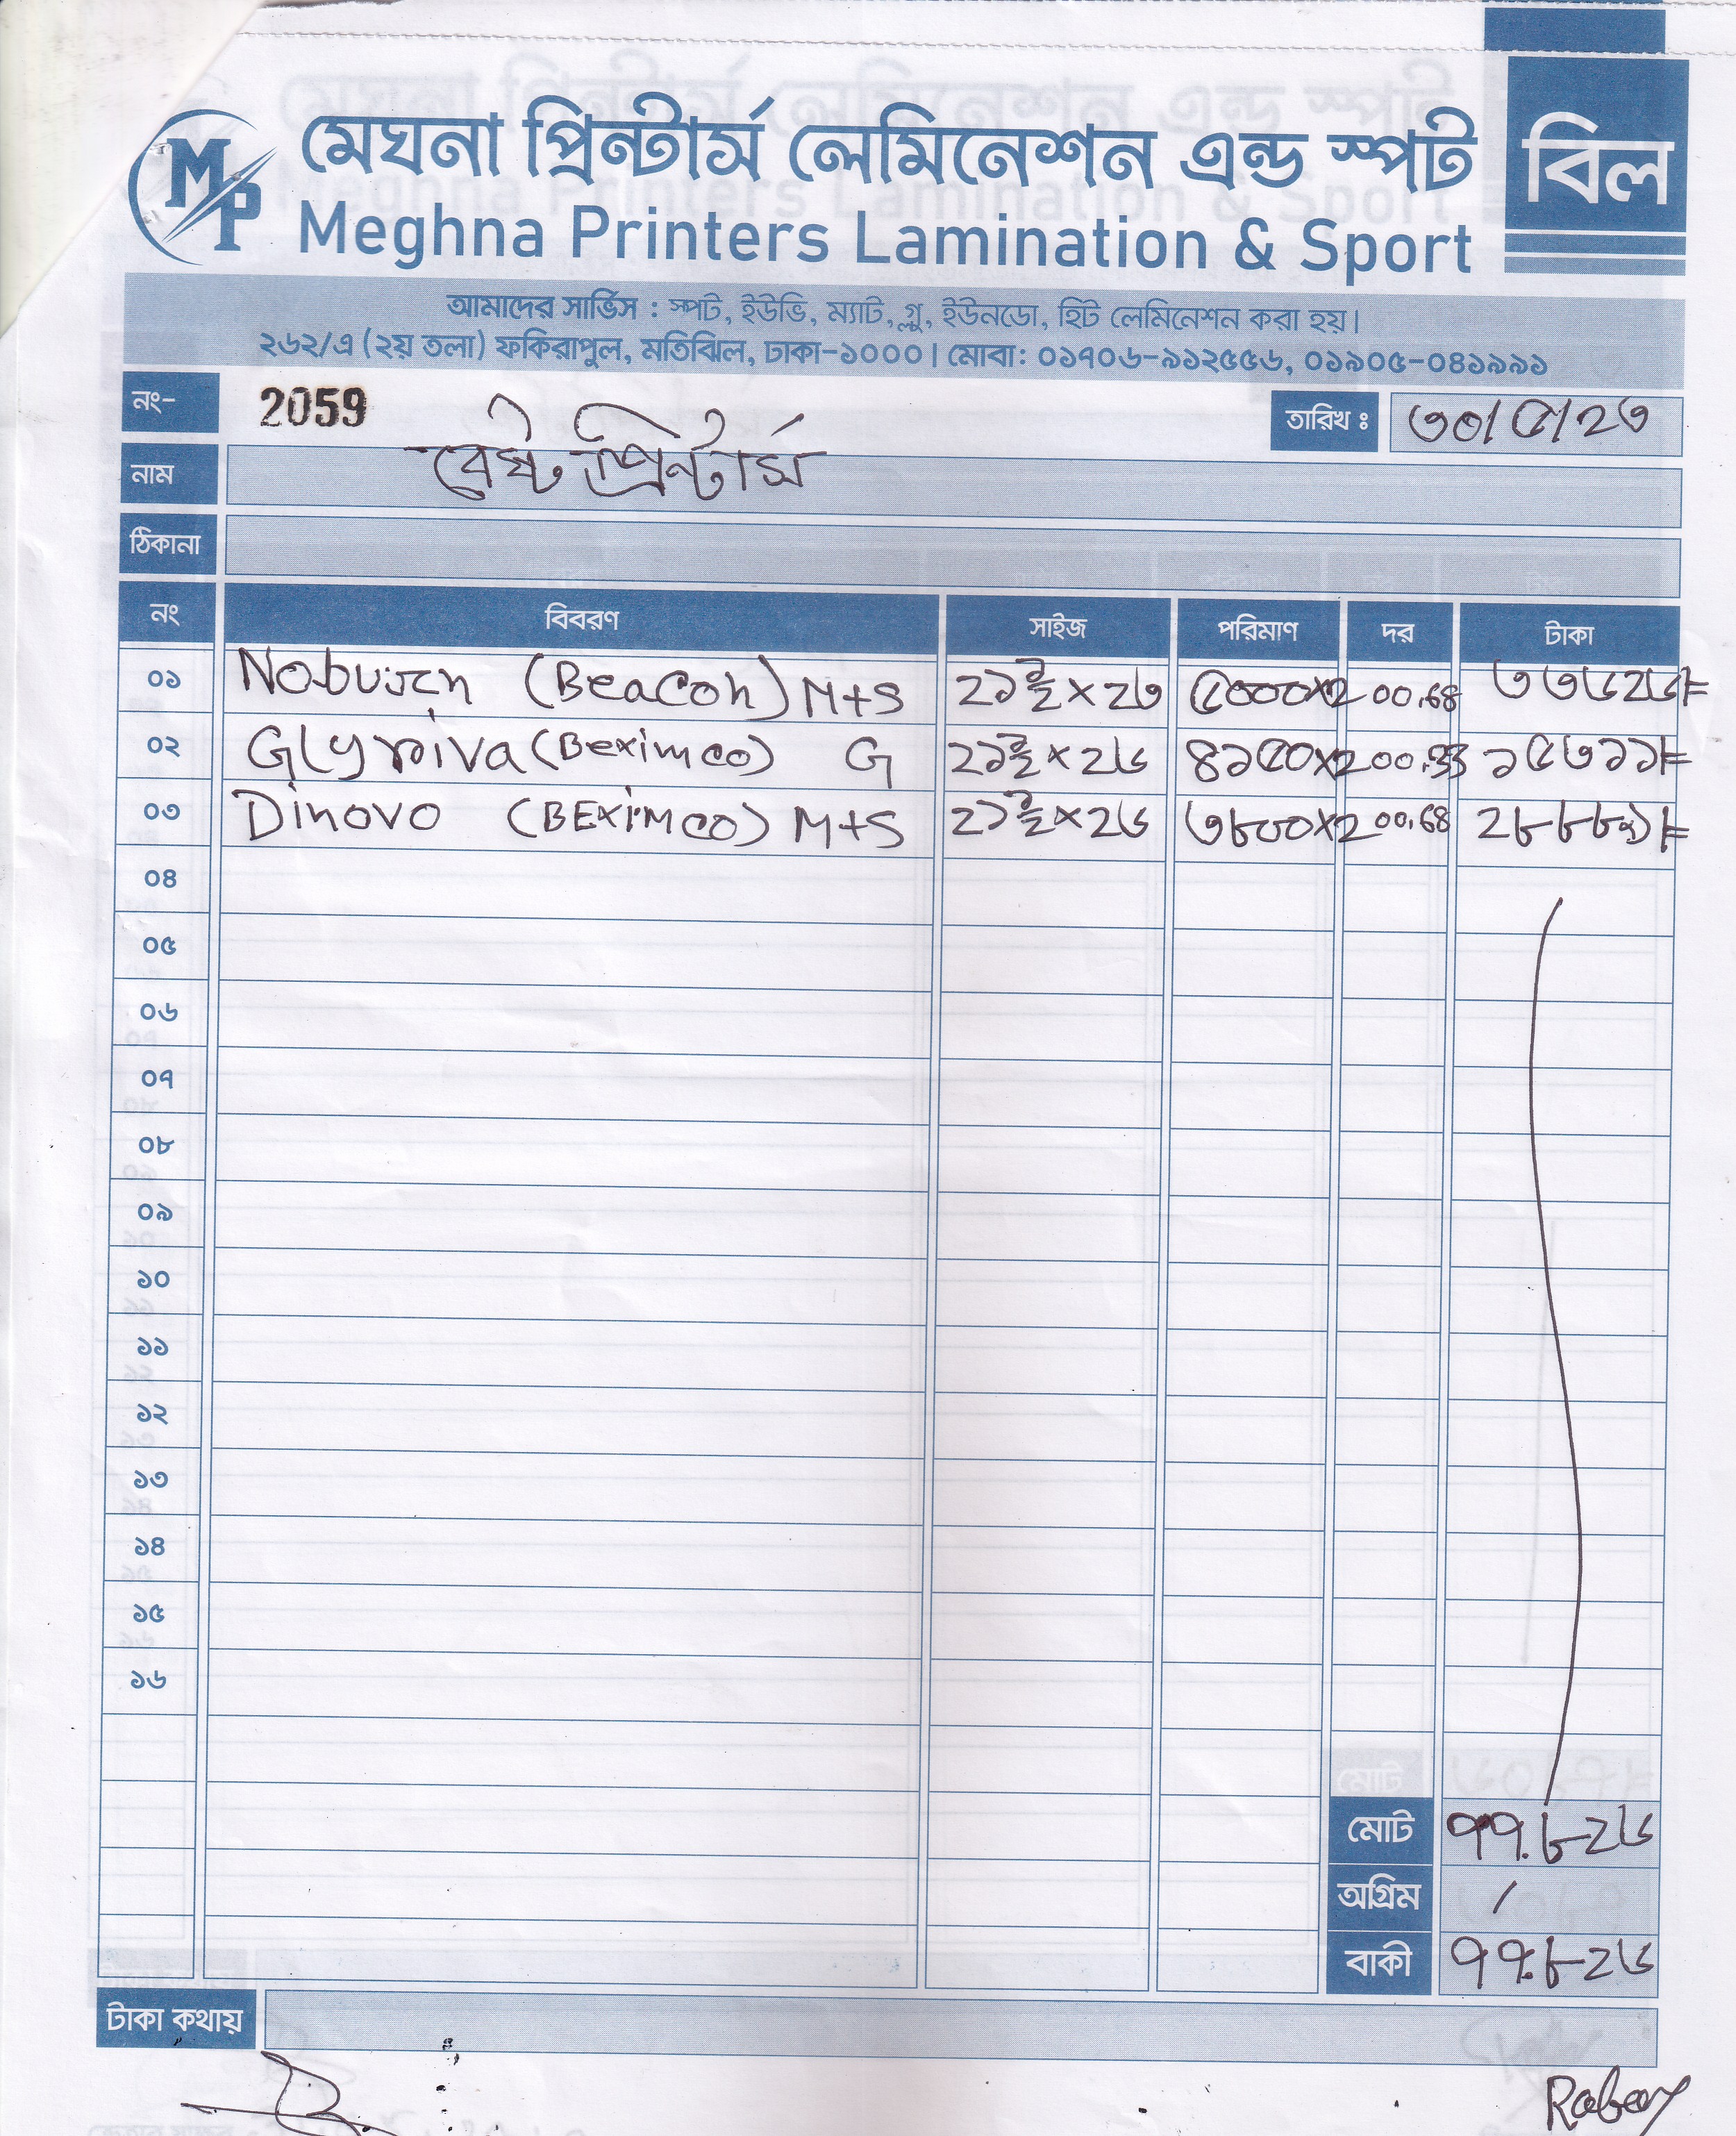 MP
মেঘনা প্রিন্টার্স লেমিনেশন এন্ড স্পট
বিল
Meghna Printers Lamination & Sport
আমাদের সার্ভিস : স্পট, ইউভি, ম্যাট, গ্লু, ইউনডো, হিট লেমিনেশন করা হয়।
২৬২/এ (২য় তলা) ফকিরাপুল, মতিঝিল, ঢাকা-১০০০। মোবা: ০১৭০৬-৯১২৫৫৬, ০১৯০৫-০৪১৯৯১
নং- 2059 তারিখ ঃ ৩০/৫/২৩
নাম বেষ্ট প্রিন্টার্স
ঠিকানা
নং বিবরণ সাইজ পরিমাণ দর টাকা
০১ (Beacon) M+S ২১ ১/২ × ২৩ ৫০০০×২ 00.68 ৩৩৬২৬/=
০২ (Beximco) G ২১ ১/২ × ২৬ ৪১৫০×২ 00.33 ১৫৩১১/=
০৩ Dinovo (BEximco) M+S ২১ ১/২ × ২৬ ৩৮০০×২ 00.68 ২৮৮৮৯/=
০৪
০৫
০৬
০৭
০৮
০৯
১০
১১
১২
১৩
১৪
১৫
১৬
মোট ৭৭.৮২৬
অগ্রিম /
বাকী ৭৭.৮২৬
টাকা কথায়